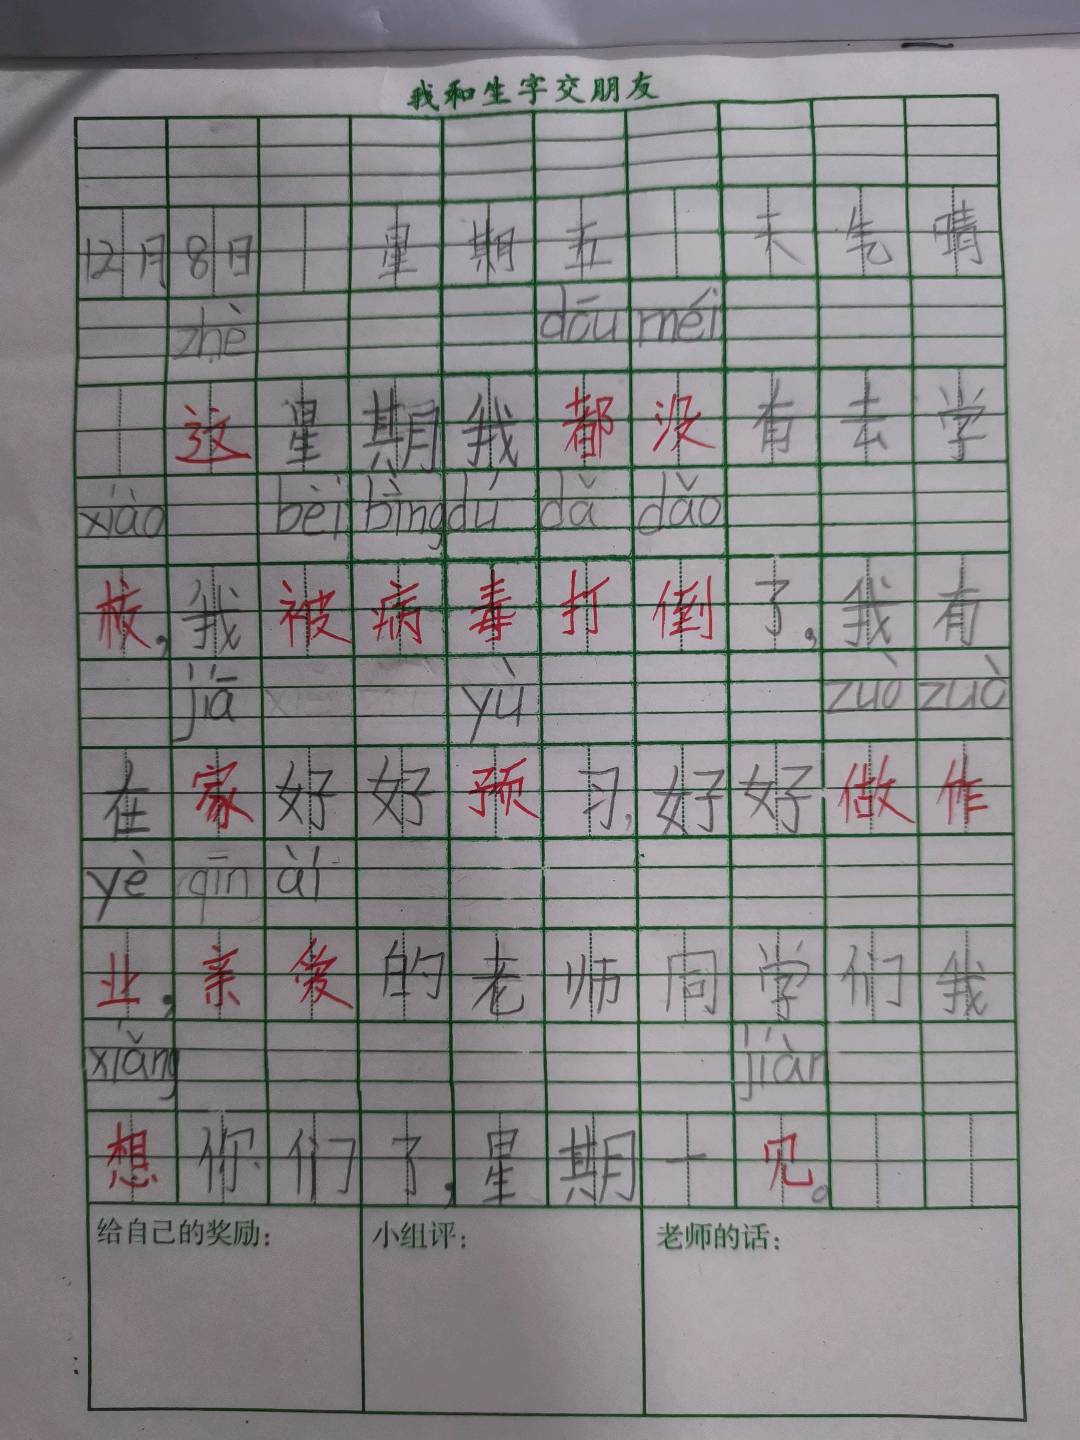 我和生字交朋友
12月8日 星期五 天气晴
zhè dōu méi
这星期我都没有去学
xiào bèi bìng dú dǎ dǎo
校,我被病毒打倒了,我有
jiā yù zuò zuò
在家好好预习,好好做作
yè qīn ài
业,亲爱的老师同学们我
xiǎng jiàn
想你们了,星期一见。
给自己的奖励: 小组评: 老师的话: